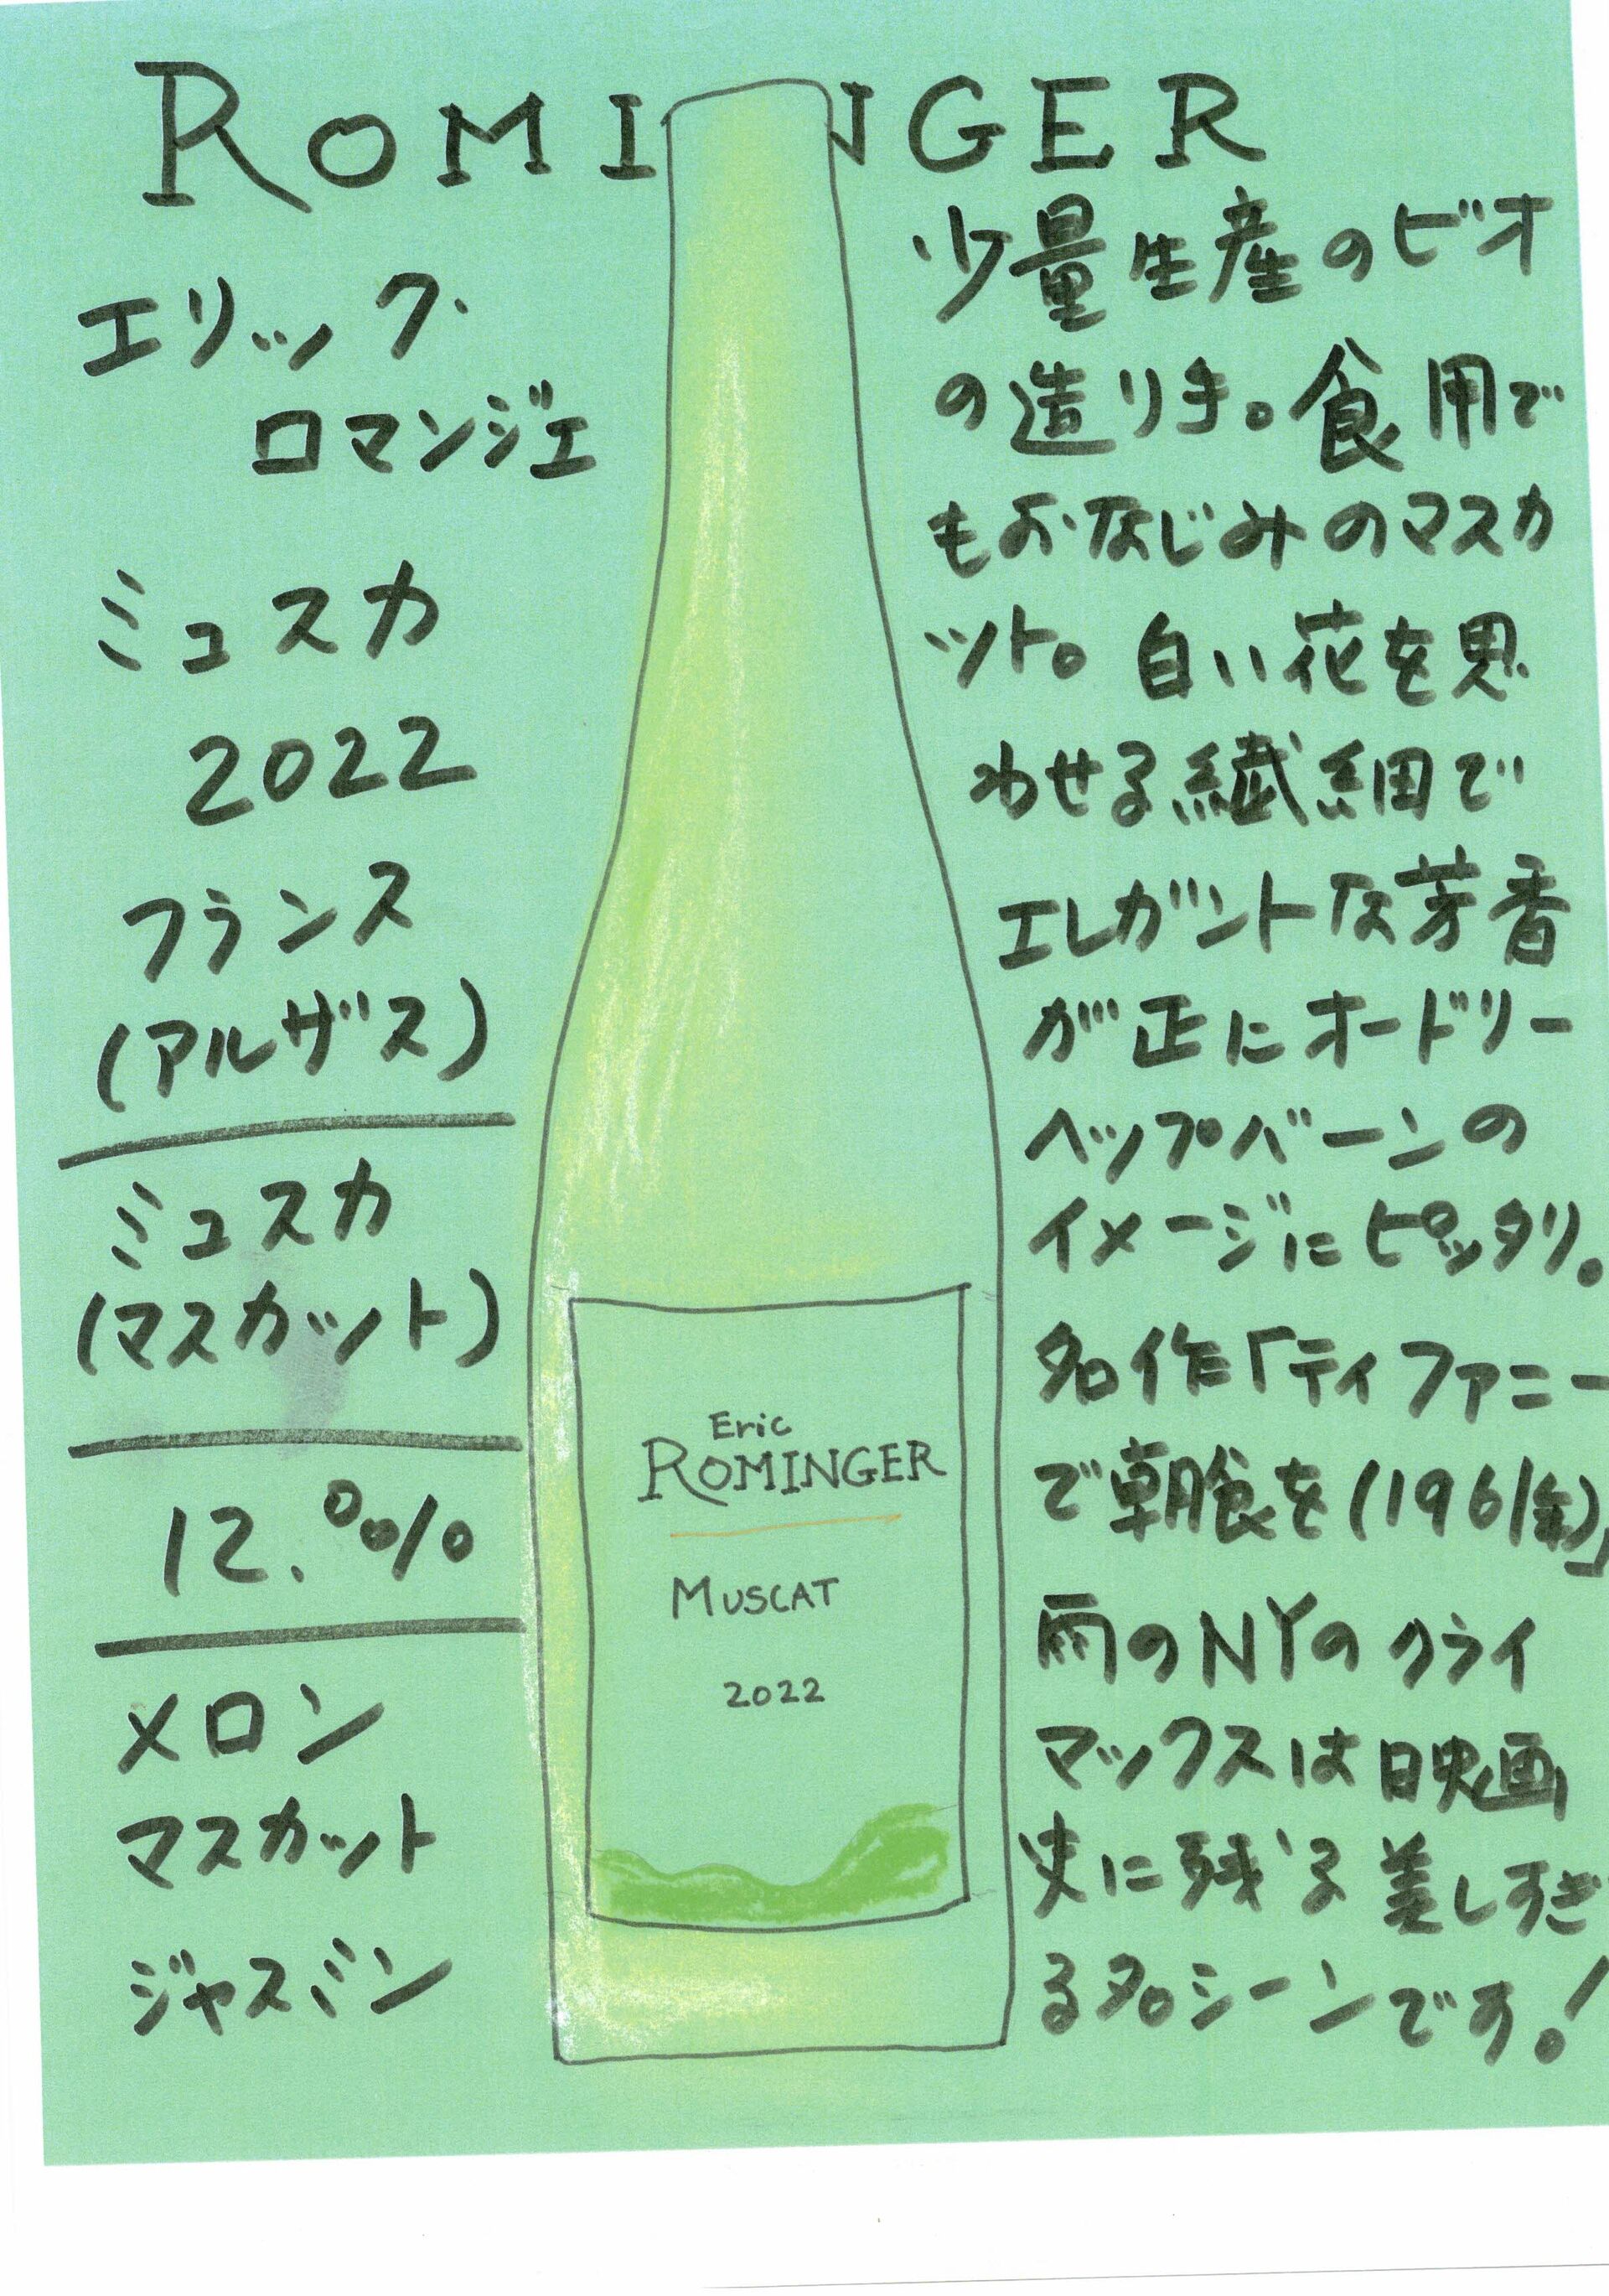 ROMINGER
エリック・
ロマンジェ
ミュスカ
2022
フランス
(アルザス)
ミュスカ
(マスカット)
12.0%
メロン
マスカット
ジャスミン
少量生産のビオ
の造り手。食用で
もおなじみのマスカ
ット。白い花を思
わせる繊細で
エレガントな芳香
が正にオードリー
ヘップバーンの
イメージにピッタリ。
名作「ティファニー
で朝食を(1961年)」
雨のNYのクライ
マックスは映画
史に残る美しすぎ
る名シーンです!
Eric
ROMINGER
MUSCAT
2022